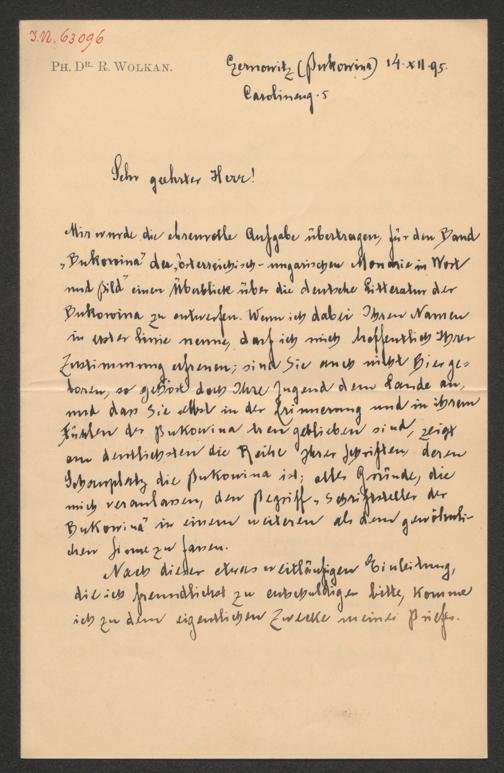 J.N. 63096
PH. DR. R. WOLKAN.
Czernowitz (Bukowina) 14.XII.95.
Carolineng. 5
Sehr geehrter Herr!
Mir wurde die ehrenvolle Aufgabe übertragen, für den Band
„Bukowina" der „österreichisch-ungarischen Monarchie in Wort
und Bild" einen Überblick über die deutsche Litteratur der
Bukowina zu entwerfen. Wenn ich dabei Ihren Namen
in erster Linie nenne, darf ich mich hoffentlich Ihrer
Zustimmung erfreuen; sind Sie auch nicht hier ge-
boren, so gehört doch Ihre Jugend dem Lande an,
und dass Sie selbst in der Erinnerung und in ihrem
Fühlen der Bukowina treu geblieben sind, zeigt
am deutlichsten die Reihe Ihrer Schriften, deren
Schauplatz die Bukowina ist; alles Gründe, die
mich veranlassen, den Begriff „Schriftsteller der
Bukowina" in einem weiteren als dem gewöhnli-
chen Sinne zu fassen.
Nach dieser etwas weitläufigen Einleitung,
die ich freundlichst zu entschuldigen bitte, komme
ich zu dem eigentlichen Zwecke meines Briefes.